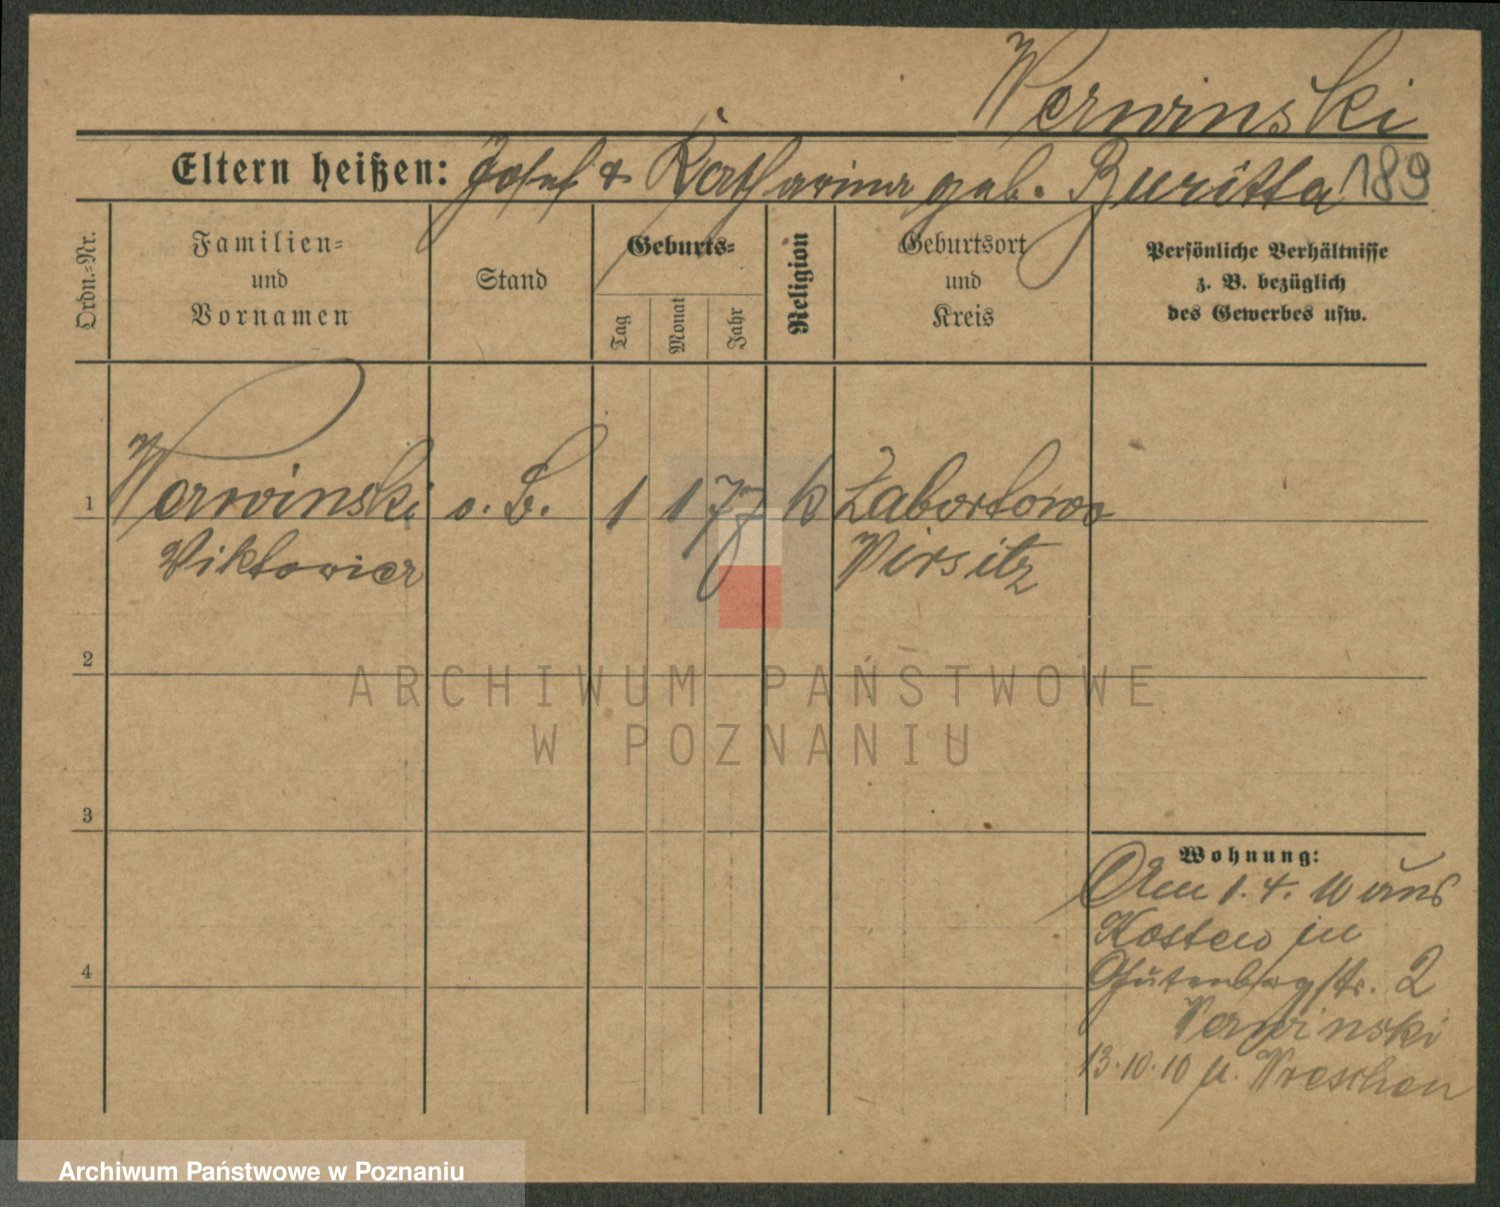 Werwinski
Eltern heißen: Josef & Katharina geb. Buritta 189
Ordn.=Nr.
Familien=
und
Vornamen
Stand
Geburts=
Tag
Monat
Jahr
Religion
Geburtsort
und
Kreis
Persönliche Verhältnisse
z. B. bezüglich
des Gewerbes usw.
1 Werwinski o. B. 1 1 77 k Zabortowo
Viktoria Wirsitz
2
3
4
Wohnung:
Am 1. 4. 10 aus
Kosten in
Gutenbergstr. 2
Werwinski
13.10.10 n. Wreschen
ARCHIWUM PAŃSTWOWE
W POZNANIU
Archiwum Państwowe w Poznaniu